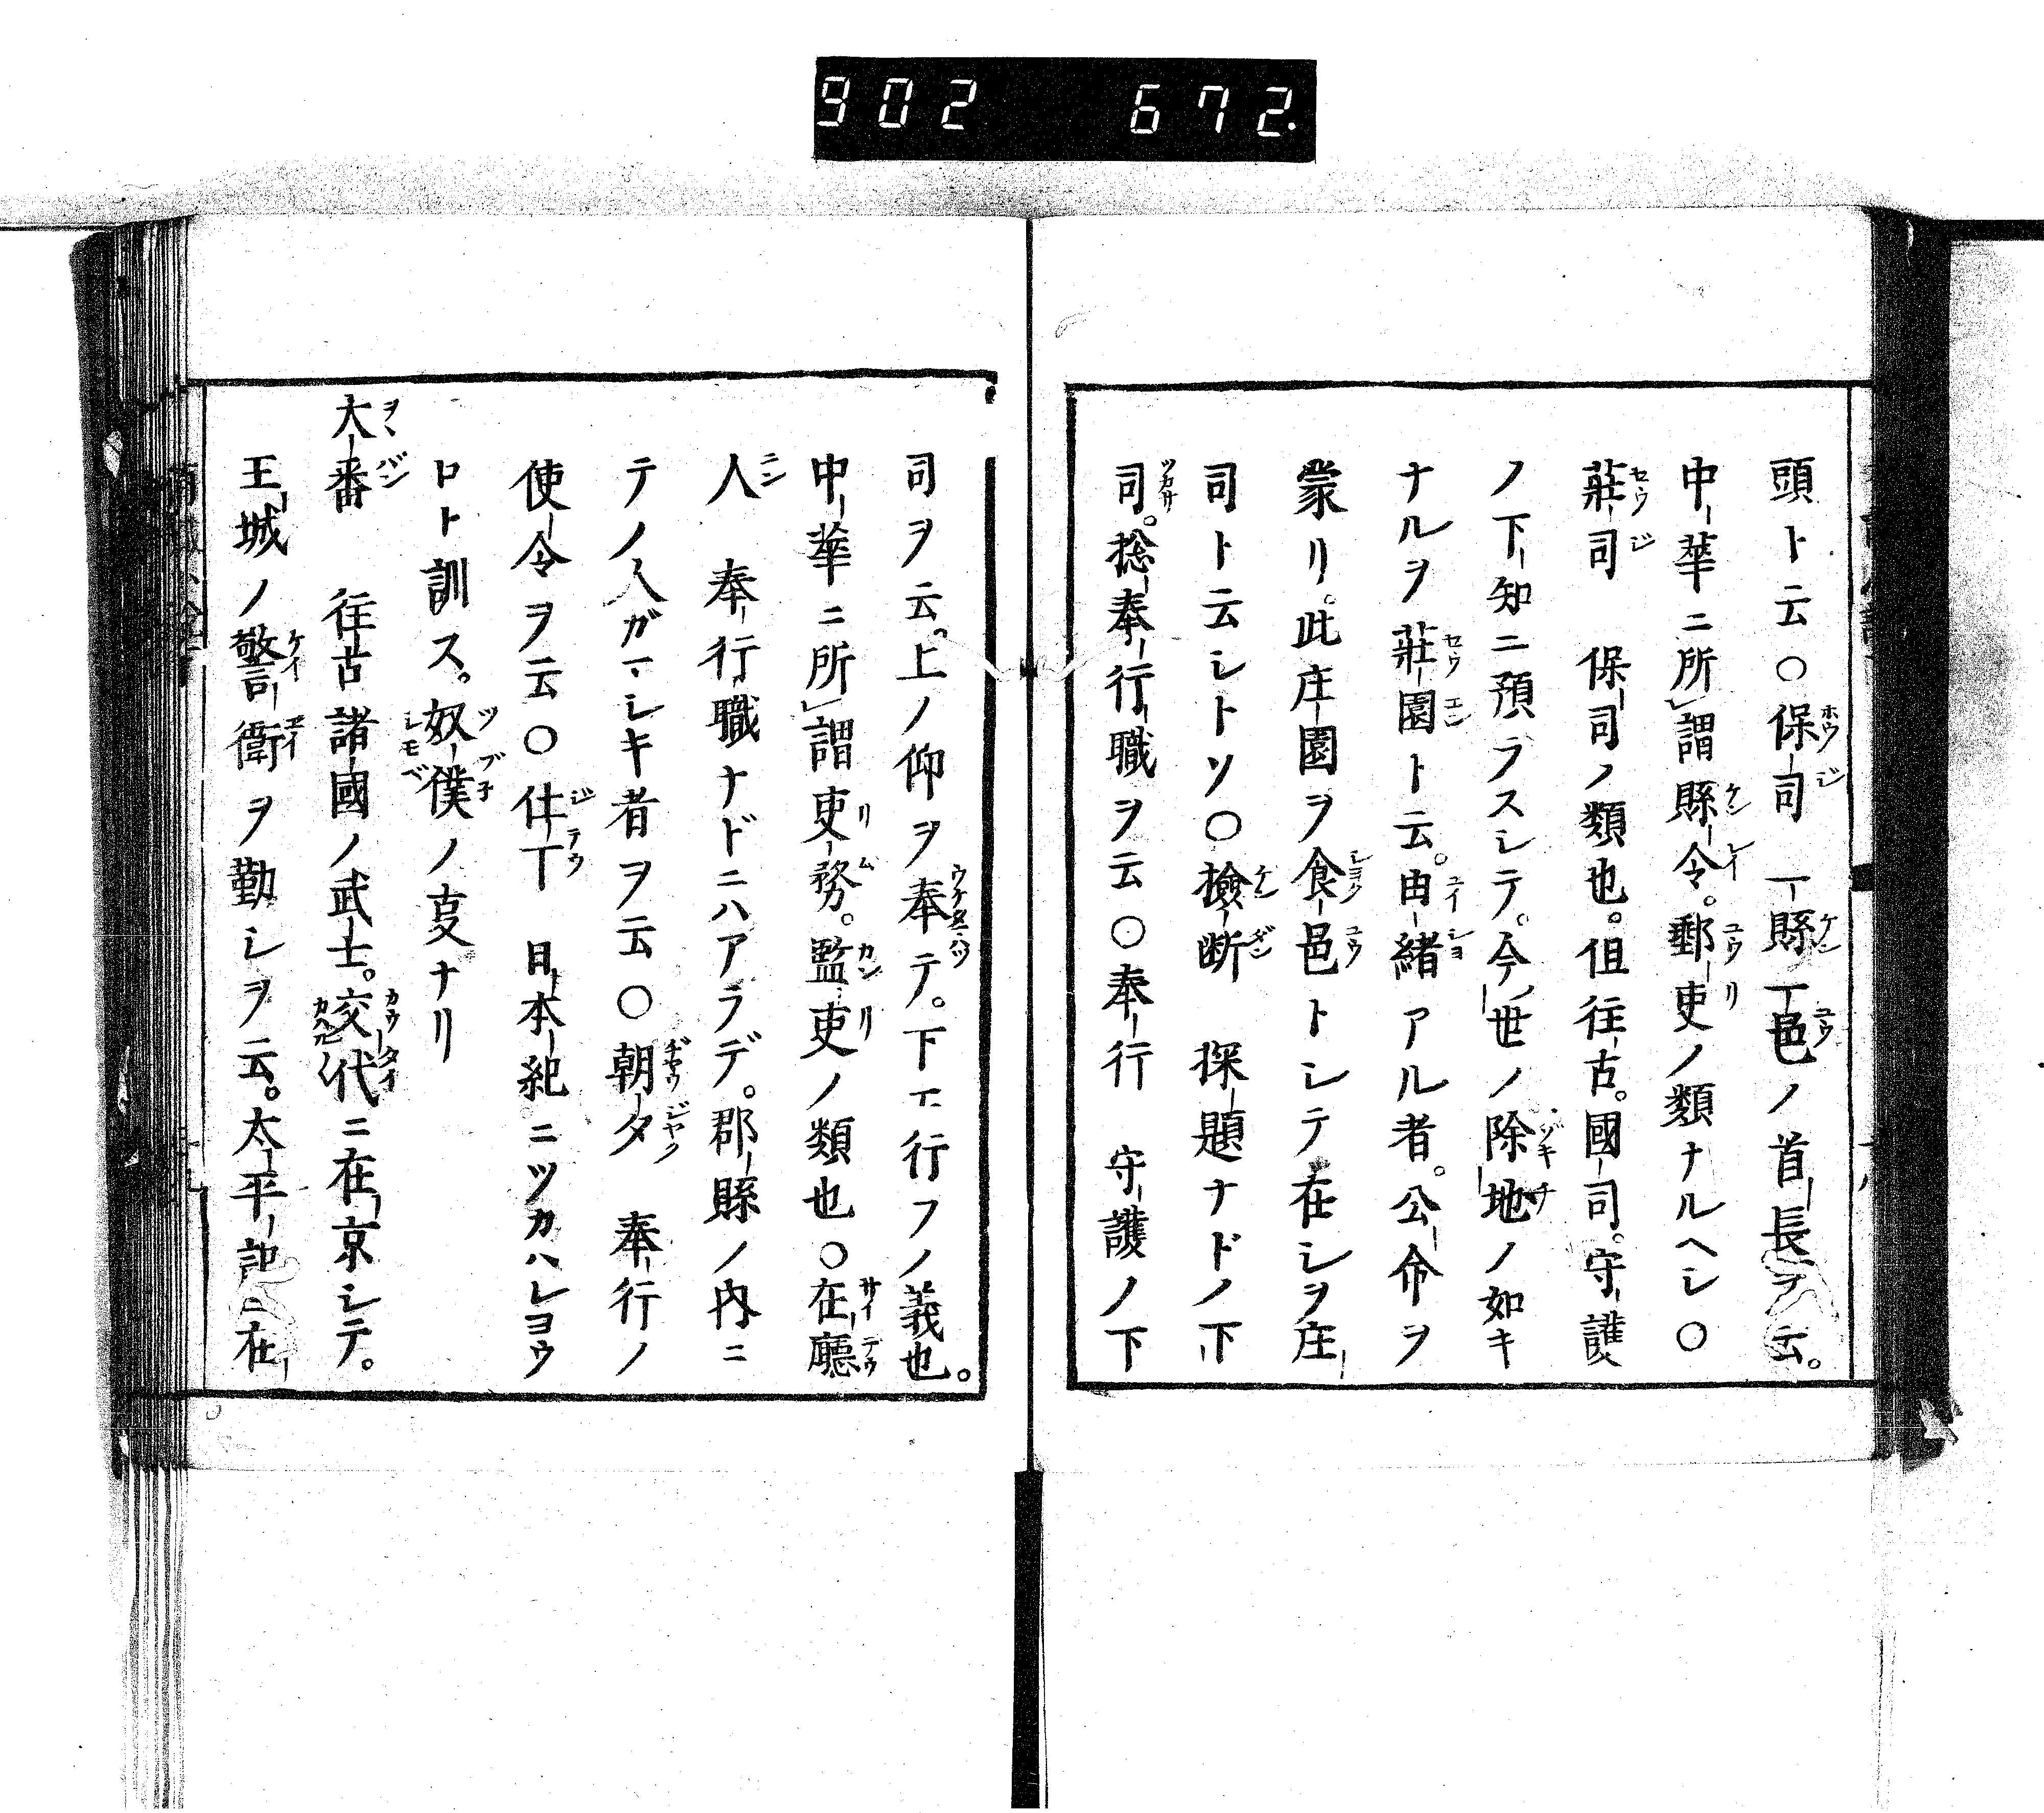 902 672.
頭ト云○保司 一縣一邑ノ首長ヲ云。
中華ニ所謂縣令。郵吏ノ類ナルヘシ○
莊司 保司ノ類也。但往古。國司。守護
ノ下知ニ預ラスシテ。今世ノ除地ノ如キ
ナルヲ莊園ト云。由緒アル者。公命ヲ
蒙リ。此庄園ヲ食邑トシテ在シヲ庄
司ト云シトソ○撿断 探題ナドノ下
司。捴奉行職ヲ云○奉行 守護ノ下
司ヲ云。上ノ仰ヲ奉テ。下エ行フノ義也。
中華ニ所謂吏務。監吏ノ類也○在廳
人 奉行職ナドニハアラデ。郡縣ノ内ニ
テノ人ガマシキ者ヲ云○朝夕 奉行ノ
使令ヲ云○仕丁 日本紀ニツカハレヨウ
ロト訓ス。奴僕ノ叓ナリ
大番 往古諸國ノ武士。交代ニ在京シテ。
王城ノ警衛ヲ勤シヲ云。太平記ニ在